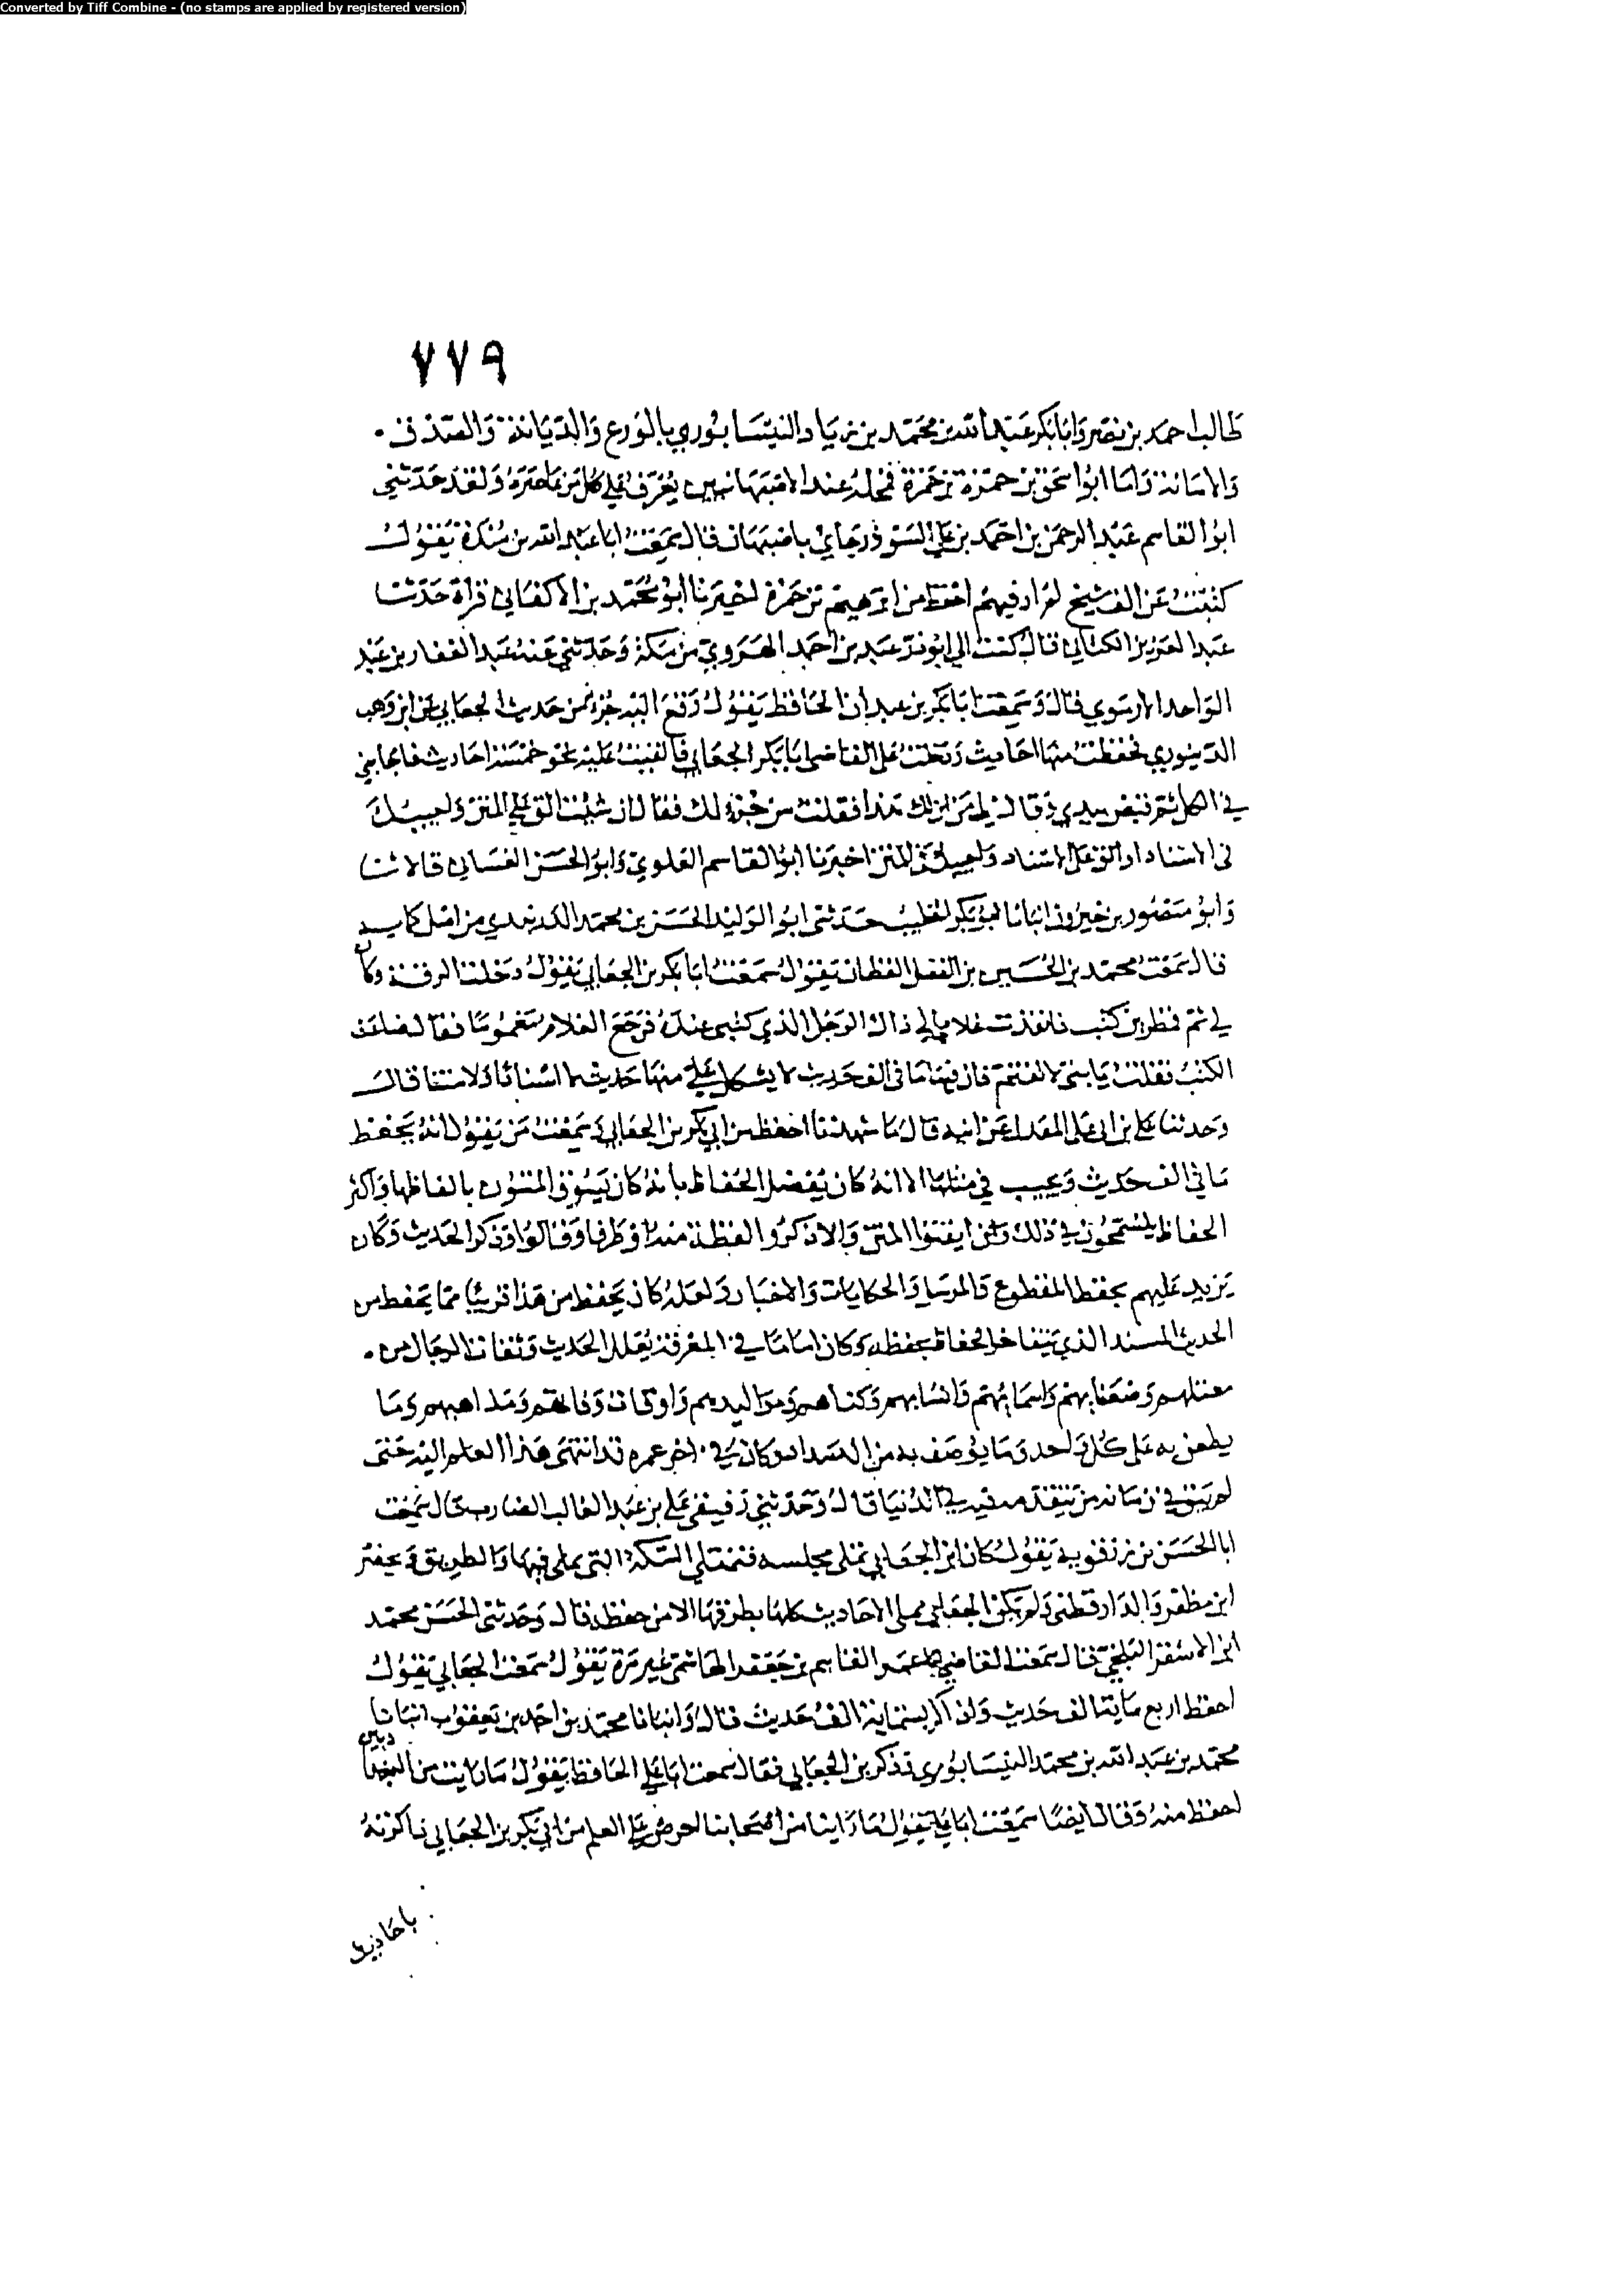 Converted by Tiff Combine - (no stamps are applied by registered version)
٧٧٩
طالب احمد بن نصر وابا بكر عبد الله بن محمد بن زياد النيسابوري بالورع والديانة والصدق
والامانة واما ابو اسحق بن حمزة بن حمزة فمحله عند الاصبهانيين يعرف على كل من عاصره ولقد حدثني
ابو القاسم عبد الرحمن بن احمد بن علي السوذرجاني باصبهان قال سمعت ابا عبد الله بن مندة يقول
كتبت عن الف شيخ لم ار فيهم احفظ من ابرهيم بن حمزة اخبرنا ابو محمد بن الاكفاني قراة حدثنا
عبد العزيز الكتاني قال كتب الي ابو ذر عبد بن احمد الهروي من مكة وحدثني عنه عبد الغفار بن عبد
الواحد الارموي قال وسمعت ابا بكر بن عبدان الحافظ يقول وقع الي جزء من حديث الجعابي عن ابن وهب
الدينوري فحفظت منها احاديث ودخلت على القاضي ابا بكر الجعابي فالقيت عليه نحو خمسة احاديث فاجابني
في الكل ثم قبض بيدي وقال لي من اين لك هذا فقلت من جزء لك فقال ان شئت الق علي المتن واجيبك
في الاسناد او الق علي الاسناد واجيبك في المتن اخبرنا ابو القاسم العلوي وابو الحسن الغساني قالا ثنا
وابو منصور بن خيرون انبانا ابو بكر الخطيب حدثني ابو الوليد الحسن بن محمد الدربندي من اصل كتابه
قال سمعت محمد بن الحسين بن الفضل القطان يقول سمعت ابا بكر بن الجعابي يقول دخلت الرقة وكان
لي ثم قطرين كتب فانفذت غلامي الى ذاك الرجل الذي كتبي عنده فرجع الغلام مغموما فقال ضاعت
الكتب فقلت يا بني لا تغتم فان فيها مائتي الف حديث لا يشكل علي منها حديث لا اسنادا ولا متنا قال
وحدثنا علي بن ابي علي المعدل عن ابيه قال ما شهدنا احفظ من ابي بكر بن الجعابي وسمعت من يقول انه يحفظ
مائتي الف حديث ويجيب في مثلها الا انه كان يفضل الحفاظ بانه كان يسوق المتون بالفاظها واكثر
الحفاظ يتسمحون في ذلك وان ايقنوا المتن والا ذكروا لفظة منه او طرفا وقالوا وذكر الحديث وكان
يزيد عليهم بحفظ المقطوع والمرسل والحكايات والاخبار ولعله كان يحفظ من هذا قريبا مما يحفظ من
الحديث المسند الذي يتفاخر الحفاظ بحفظه وكان اماما في المعرفة بعلل الحديث وثقات الرجال من
معتلهم وضعفايهم واسمائهم وانسابهم وكناهم ومواليدهم واوقات وفاتهم ومذاهبهم وما
يطعن به على كل واحد وما يوصف به من السداد وكان في اخر عمره قد انتهى هذا العلم اليه حتى
لم يبق في زمانه من يتقدمه فيه في الدنيا قال وحدثني رفيقي علي بن عبد الغالب الضراب قال سمعت
ابا الحسن بن رزقويه يقول كان ابن الجعابي يملي مجلسه فتمتلي السكة التي يملي فيها والطريق ويحضر
ابن مظفر والدارقطني ولم يكن الجعابي يملي الاحاديث كلها بطرقها الا من حفظه قال وحدثني الحسن محمد
ابن الاشقر البلخي قال سمعت القاضي ابا عمر القاسم بن جعفر الهاشمي غير مرة يقول سمعت الجعابي يقول
احفظ اربع ماية الف حديث واذاكر بستماية الف حديث قال وانبانا محمد بن احمد بن يعقوب انبانا
محمد بن عبد الله بن محمد النيسابوري وذكر بن الجعابي فقال سمعت ابا علي الحافظ يقول ما رايت من البغداديين
احفظ منه وقال ايضا سمعت ابا علي يقول ما راينا من اصحابنا احرص على العلم من ابي بكر بن الجعابي ذاكرته
باحاديث